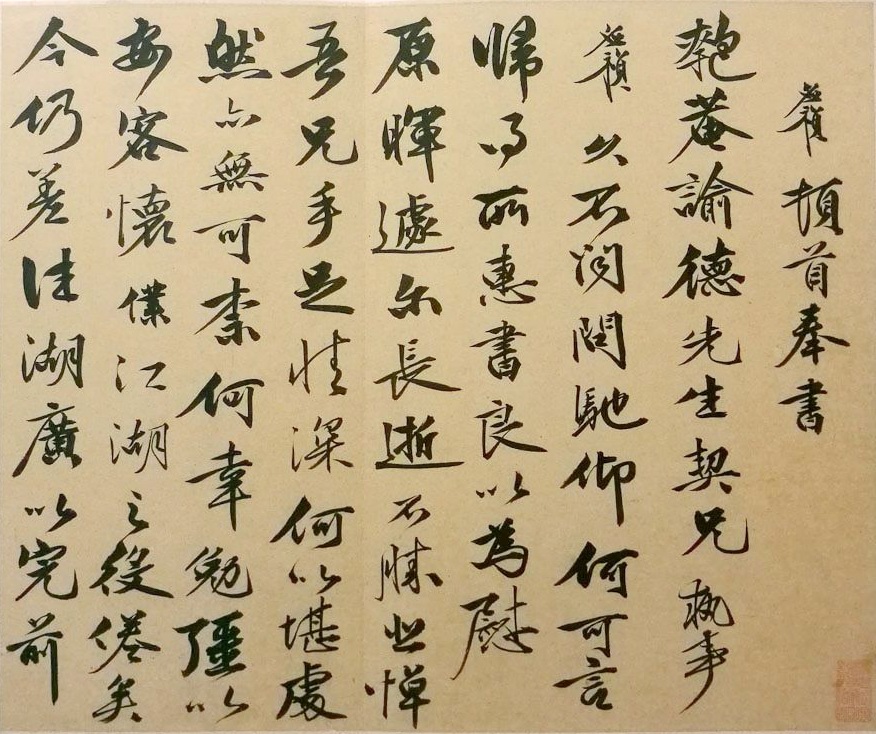 應禎頓首奉書
匏菴諭德先生契兄執事
應禎久不聞問馳仰何可言
歸得所惠書良以為慰
原暉遽尔長逝不勝悲悼
吾兄手足情深何以堪處
然亦無可柰何幸勉彊以
安客懷僕江湖之役倦矣
今仍差往湖廣以完前